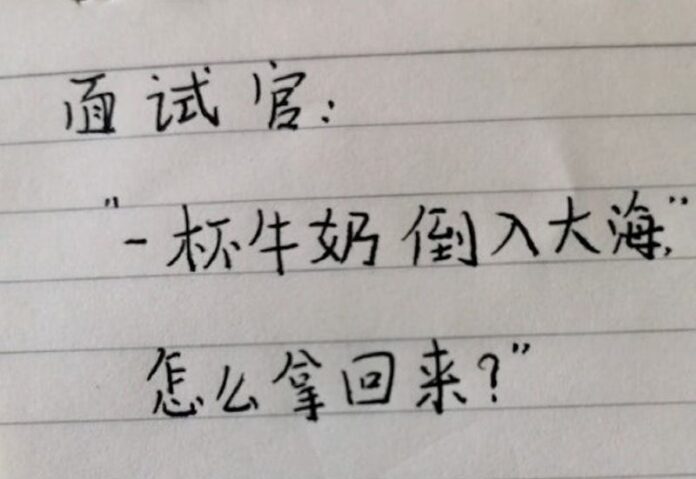 面试官:
"一杯牛奶倒入大海,"
怎么拿回来?"